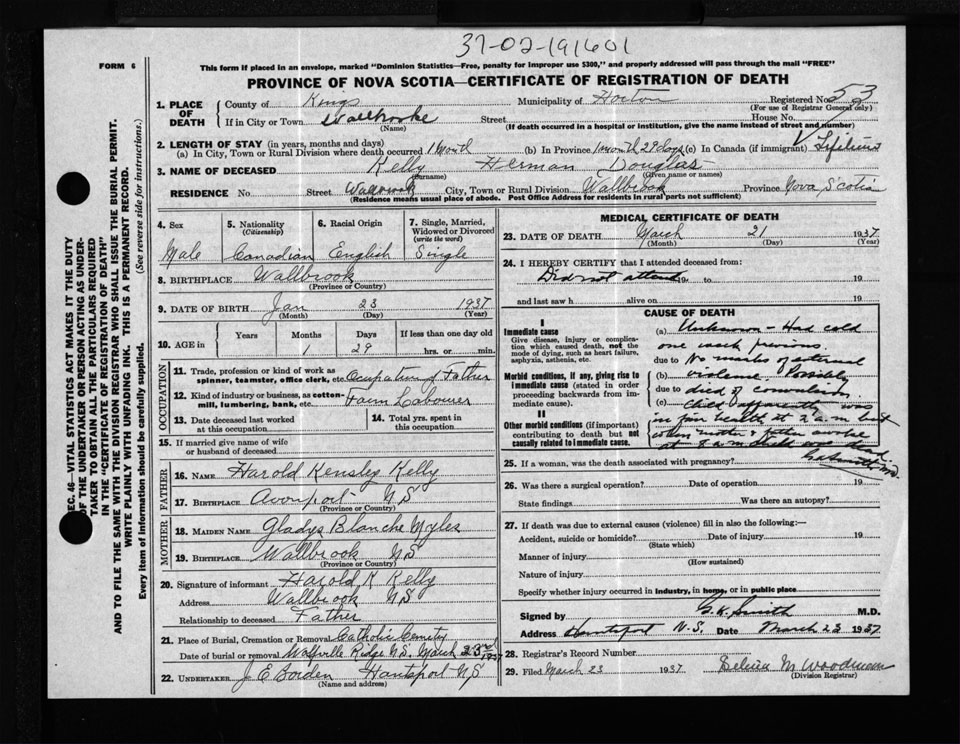 37-02-191601
FORM 6
This form if placed in an envelope, marked "Dominion Statistics—Free, penalty for improper use $300," and properly addressed will pass through the mail "FREE"
PROVINCE OF NOVA SCOTIA—CERTIFICATE OF REGISTRATION OF DEATH
1. PLACE OF DEATH County of Kings Municipality of Horton Registered No. 53
(For use of Registrar General only)
If in City or Town Wallbrooke Street House No.
(Name) (If death occurred in a hospital or institution, give the name instead of street and number)
2. LENGTH OF STAY (in years, months and days)
(a) In City, Town or Rural Division where death occurred 1 Month (b) In Province 1 month 29 days (c) In Canada (if immigrant) Lifetime
3. NAME OF DECEASED Kelly Herman Douglas
(Surname) (Given name or names)
RESIDENCE No. Street Wallbrook City, Town or Rural Division Wallbrook Province Nova Scotia
(Residence means usual place of abode. Post Office Address for residents in rural parts not sufficient)
SEC. 46—VITAL STATISTICS ACT MAKES IT THE DUTY
OF THE UNDERTAKER OR PERSON ACTING AS UNDER-
TAKER TO OBTAIN ALL THE PARTICULARS REQUIRED
IN THE "CERTIFICATE OF REGISTRATION OF DEATH"
AND TO FILE THE SAME WITH THE DIVISION REGISTRAR WHO SHALL ISSUE THE BURIAL PERMIT.
WRITE PLAINLY WITH UNFADING INK. THIS IS A PERMANENT RECORD.
Every item of information should be carefully supplied. (See reverse side for instructions.)
4. Sex 5. Nationality (Citizenship) 6. Racial Origin 7. Single, Married, Widowed or Divorced (write the word)
Male Canadian English Single
8. BIRTHPLACE Wallbrook
(Province or Country)
9. DATE OF BIRTH Jan 23 1937
(Month) (Day) (Year)
10. AGE in Years Months Days If less than one day old
1 29 hrs. or min.
OCCUPATION
11. Trade, profession or kind of work as spinner, teamster, office clerk, etc. Occupation of Father
12. Kind of industry or business, as cotton-mill, lumbering, bank, etc. Farm Labourer
13. Date deceased last worked at this occupation 14. Total yrs. spent in this occupation
15. If married give name of wife or husband of deceased
FATHER
16. NAME Harold Kensley Kelly
17. BIRTHPLACE Avonport N S
(Province or Country)
MOTHER
18. MAIDEN NAME Gladys Blanche Myles
19. BIRTHPLACE Wallbrook N S
(Province or Country)
20. Signature of informant Harold K Kelly
Address Wallbrook N S
Relationship to deceased Father
21. Place of Burial, Cremation or Removal Catholic Cemetry
Date of burial or removal Wolfville Ridge N.S. March 23rd 1937
22. UNDERTAKER J E Borden Hantsport N S
(Name and address)
MEDICAL CERTIFICATE OF DEATH
23. DATE OF DEATH March 21 1937
(Month) (Day) (Year)
24. I HEREBY CERTIFY that I attended deceased from:
Did not attend 19 to 19
and last saw h alive on 19
CAUSE OF DEATH
I
Immediate cause
Give disease, injury or complication which caused death, not the mode of dying, such as heart failure, asphyxia, asthenia, etc.
Morbid conditions, if any, giving rise to immediate cause (stated in order proceeding backwards from immediate cause).
II
Other morbid conditions (if important) contributing to death but not causally related to immediate cause.
(a) Unknown – Had cold
one week previous.
due to No marks of external
(b) violence. Possibly
due to died of convulsion
(c) Child apparently was
in fair health at 2 a.m. but
when mother & father awoke
at 8 a.m. death was dead
G K Smith M.D.
25. If a woman, was the death associated with pregnancy?
26. Was there a surgical operation? Date of operation 19
State findings Was there an autopsy?
27. If death was due to external causes (violence) fill in also the following:—
Accident, suicide or homicide? Date of injury 19
(State which)
Manner of injury
(How sustained)
Nature of injury
Specify whether injury occurred in Industry, in home, or in public place
Signed by G. K. Smith M.D.
Address Hantsport N.S. Date March 23 1937
28. Registrar's Record Number
29. Filed March 23 1937 M Woodman
(Division Registrar)